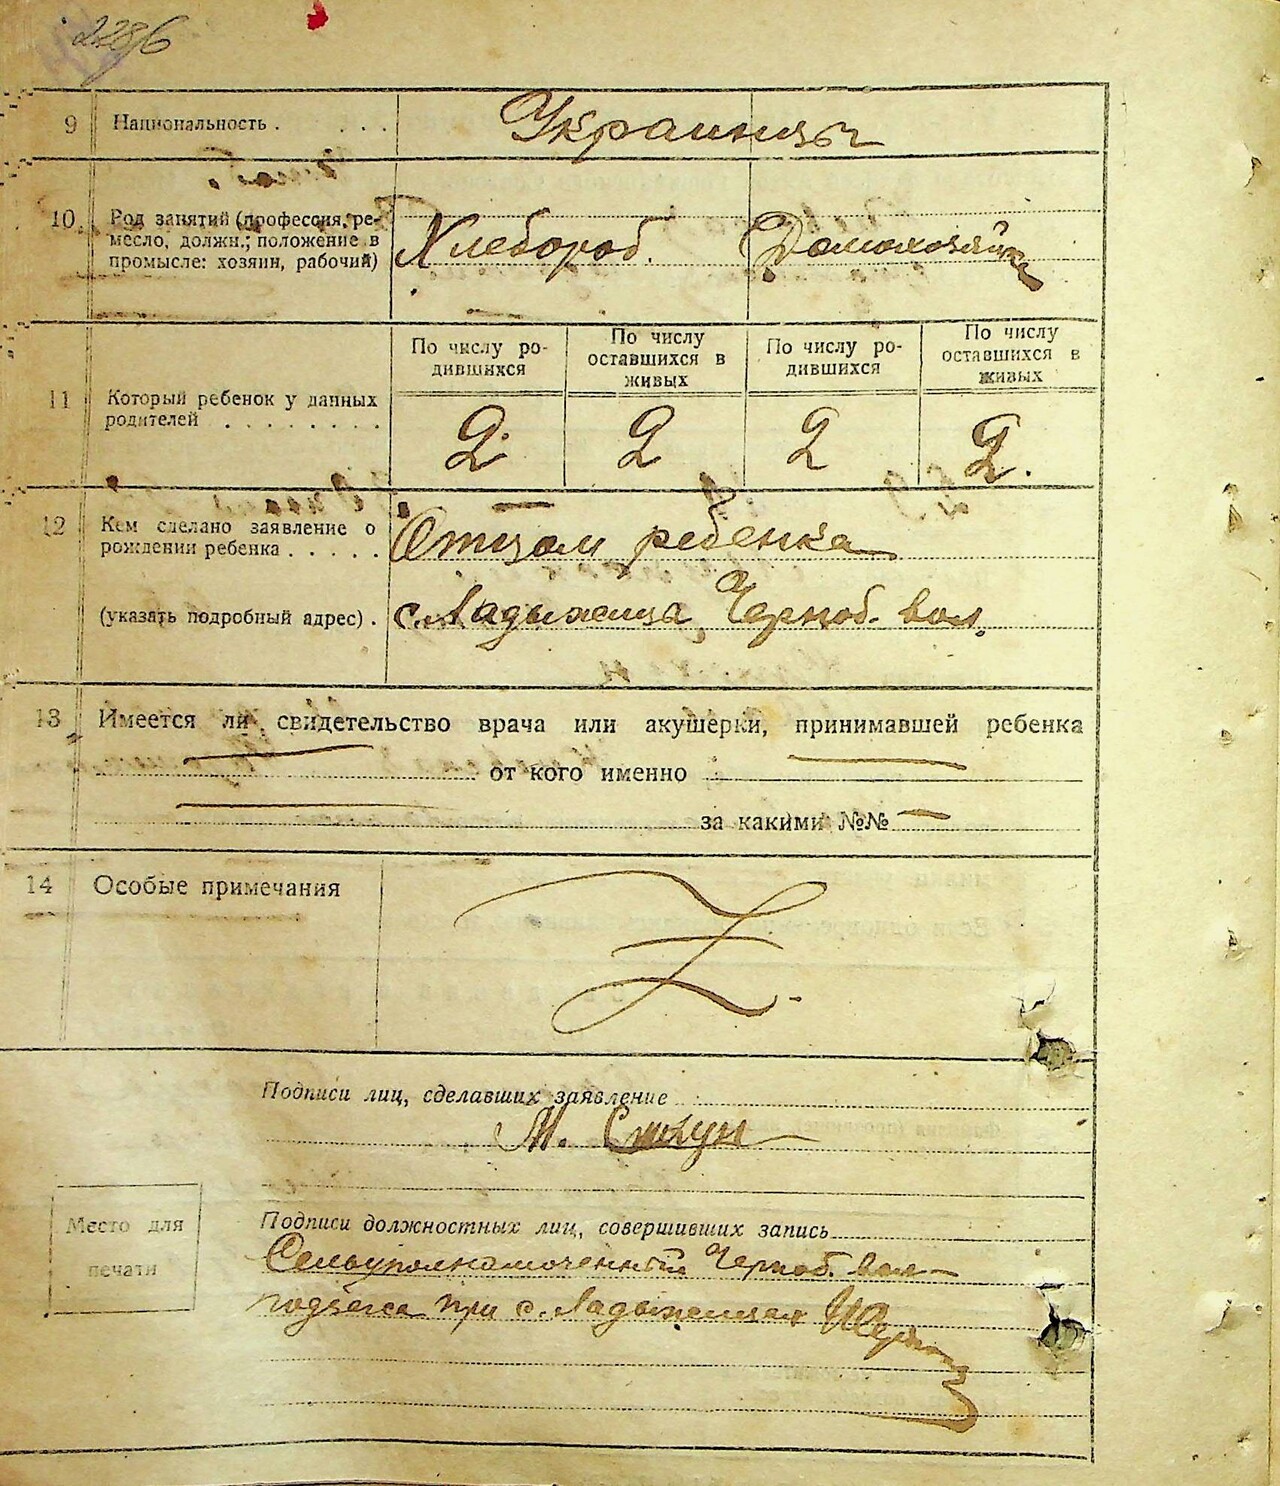 2286
9 Национальность . . . . Украинцы
10. Род занятий (профессия, ре-
месло, должн.; положение в
промысле: хозяин, рабочий)
Хлебороб. Домохозяйка
11 Который ребенок у данных
родителей . . . . . . . .
По числу ро-
дившихся
По числу
оставшихся в
живых
По числу ро-
дившихся
По числу
оставшихся в
живых
2 2 2 2.
12 Кем сделано заявление о
рождении ребенка . . . . .
Отцом ребенка
(указать подробный адрес) . с. Ладыжеца, Черноб. вол.
13 Имеется ли свидетельство врача или акушерки, принимавшей ребенка
от кого именно
за какими №№ —
14 Особые примечания
Подписи лиц, сделавших заявление
М.
Место для
печати
Подписи должностных лиц, совершивших запись
Сельуполномоченный Черноб. вол-
подзагса при с.